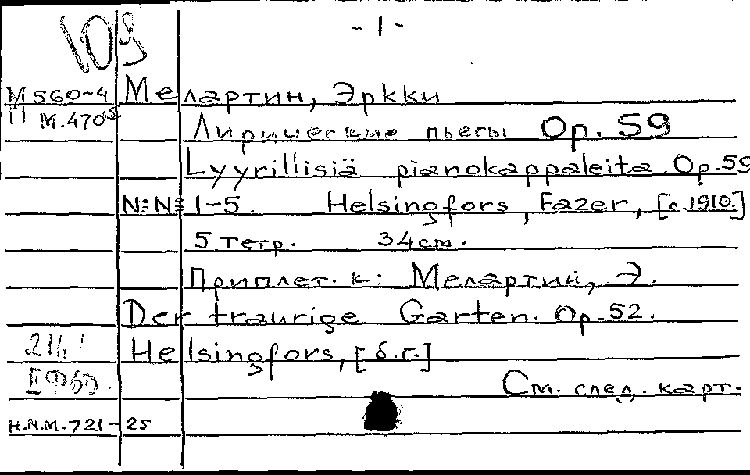 109
- 1 -
М560-4 Мелартин, Эркки
П М.470
Лирические пьесы Op. 59
Lyyrillisiä pianokappaleita Op.59
N:N: 1-5. Helsingfors, Fazer, [c.1910.]
5 тетр. 34см.
Приплет. к: Мелартин, Э.
Der traurige Garten. Op.52.
Helsingfors, [б.г.]
См. след. карт.
Н.М.-721-25